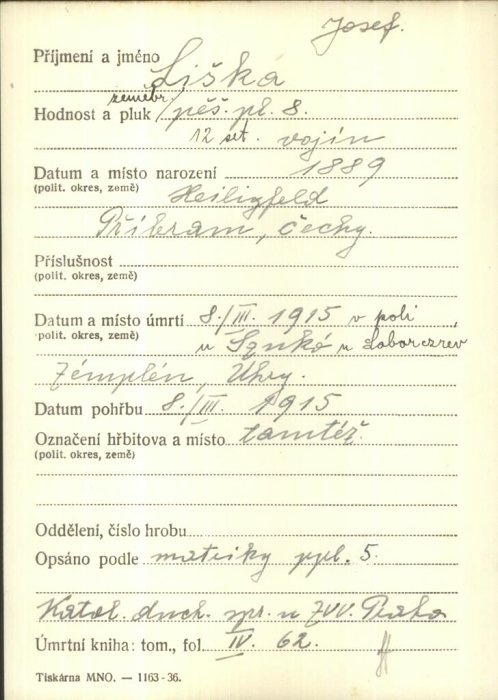 Josef.
Příjmení a jméno Liška
zeměbr.
Hodnost a pluk pěš. pl. 8.
12 set. vojín
Datum a místo narození 1889
(polit. okres, země) Heiligfeld
Příbram, Čechy.
Příslušnost
(polit. okres, země)
Datum a místo úmrtí 8./III. 1915 v poli
(polit. okres, země) u Sznkó u Laborczrev
Zemplén, Uhry.
Datum pohřbu 8./III. 1915
Označení hřbitova a místo tamtéž.
(polit. okres, země)
Oddělení, číslo hrobu
Opsáno podle matriky ppl. 5.
Katol. duch. spr. u ZVV. Praha
Úmrtní kniha: tom., fol. IV. 62.
Tiskárna MNO. — 1163-36.